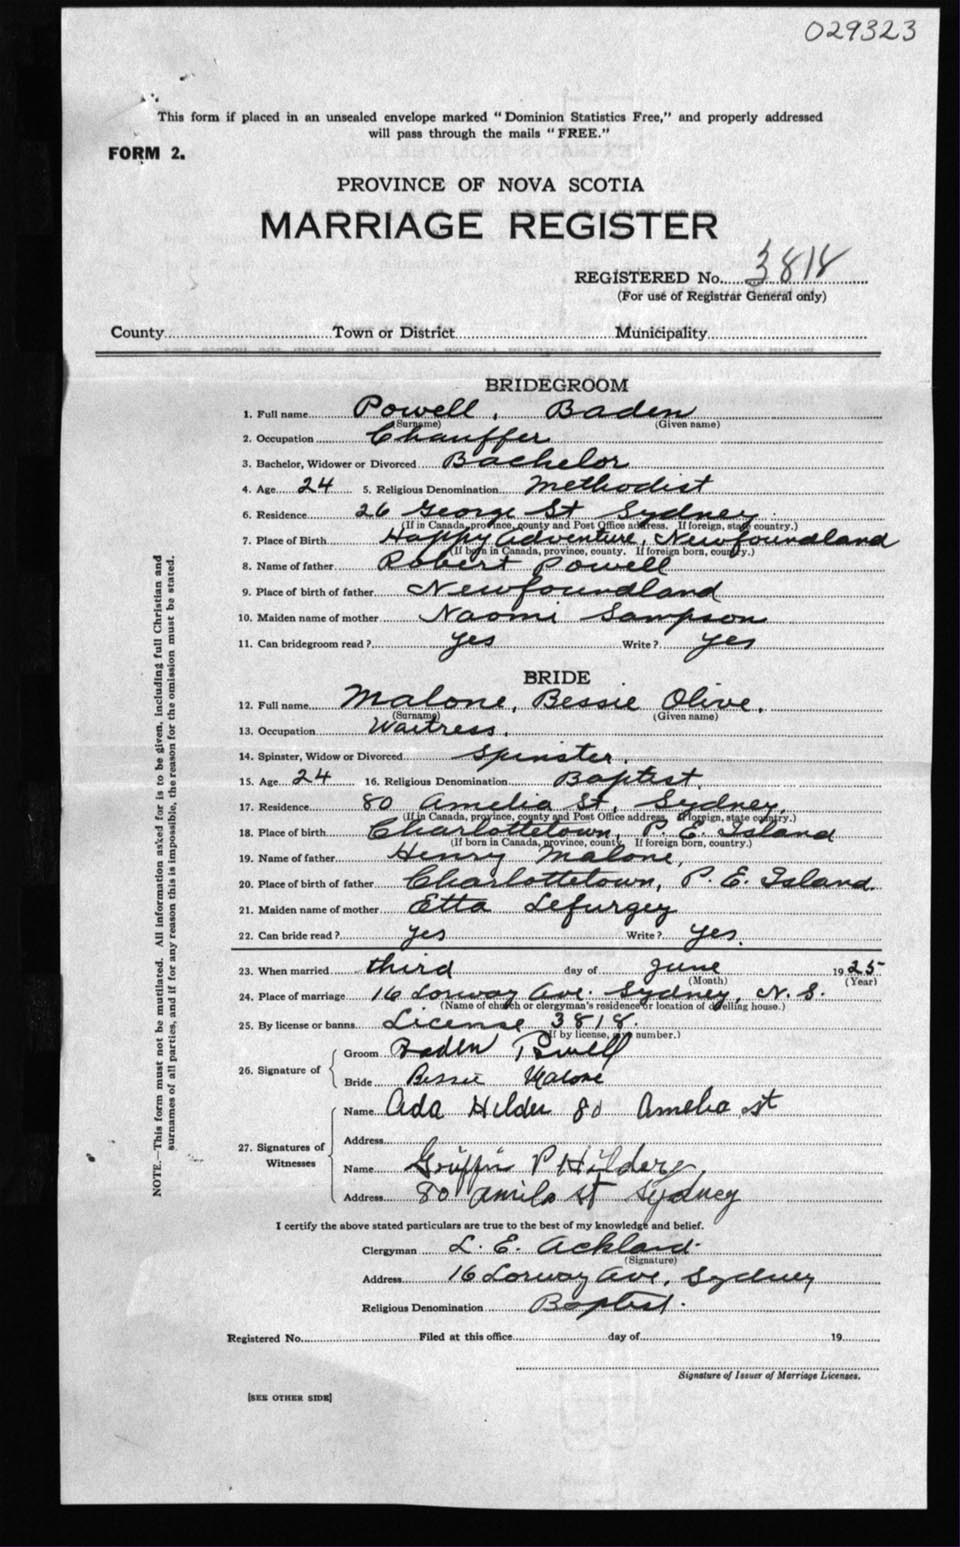 029323
This form if placed in an unsealed envelope marked "Dominion Statistics Free," and properly addressed
will pass through the mails "FREE."
FORM 2.
PROVINCE OF NOVA SCOTIA
MARRIAGE REGISTER
REGISTERED No. 3818
(For use of Registrar General only)
County Town or District Municipality
BRIDEGROOM
1. Full name Powell, Baden
(Surname) (Given name)
2. Occupation Chauffer
3. Bachelor, Widower or Divorced Bachelor
4. Age 24 5. Religious Denomination Methodist
6. Residence 26 George St Sydney.
(If in Canada, province, county and Post Office address. If foreign, state country.)
7. Place of Birth Happy Adventure, Newfoundland
(If born in Canada, province, county. If foreign born, country.)
8. Name of father Robert Powell
9. Place of birth of father Newfoundland
10. Maiden name of mother Naomi Sampson
11. Can bridegroom read? yes Write? yes
BRIDE
12. Full name Malone, Bessie Olive.
(Surname) (Given name)
13. Occupation Waitress.
14. Spinster, Widow or Divorced Spinster.
15. Age 24 16. Religious Denomination Baptist.
17. Residence 80 Amelia St, Sydney.
(If in Canada, province, county and Post Office address. If foreign, state country.)
18. Place of birth Charlottetown, P. E. Island
(If born in Canada, province, county. If foreign born, country.)
19. Name of father Henry Malone,
20. Place of birth of father Charlottetown, P. E. Island.
21. Maiden name of mother Etta Lefurgey
22. Can bride read? yes Write? yes.
23. When married third day of June 1925
(Month) (Year)
24. Place of marriage 16 Lorway Ave. Sydney, N. S.
(Name of church or clergyman's residence or location of dwelling house.)
25. By license or banns License 3818.
(If by license, give number.)
26. Signature of
Groom Baden Powell
Bride Bessie Malone
27. Signatures of Witnesses
Name Ada Hilder 80 Amelia st
Address
Name Griffin P Hilder
Address 80 Amila st Sydney
I certify the above stated particulars are true to the best of my knowledge and belief.
Clergyman L. E. Ackland.
(Signature)
Address 16 Lorway Ave, Sydney
Religious Denomination Baptist.
Registered No. Filed at this office day of 19
Signature of Issuer of Marriage Licenses.
[SEE OTHER SIDE]
NOTE.—This form must not be mutilated. All information asked for is to be given, including full Christian and
surnames of all parties, and if for any reason this is impossible, the reason for the omission must be stated.